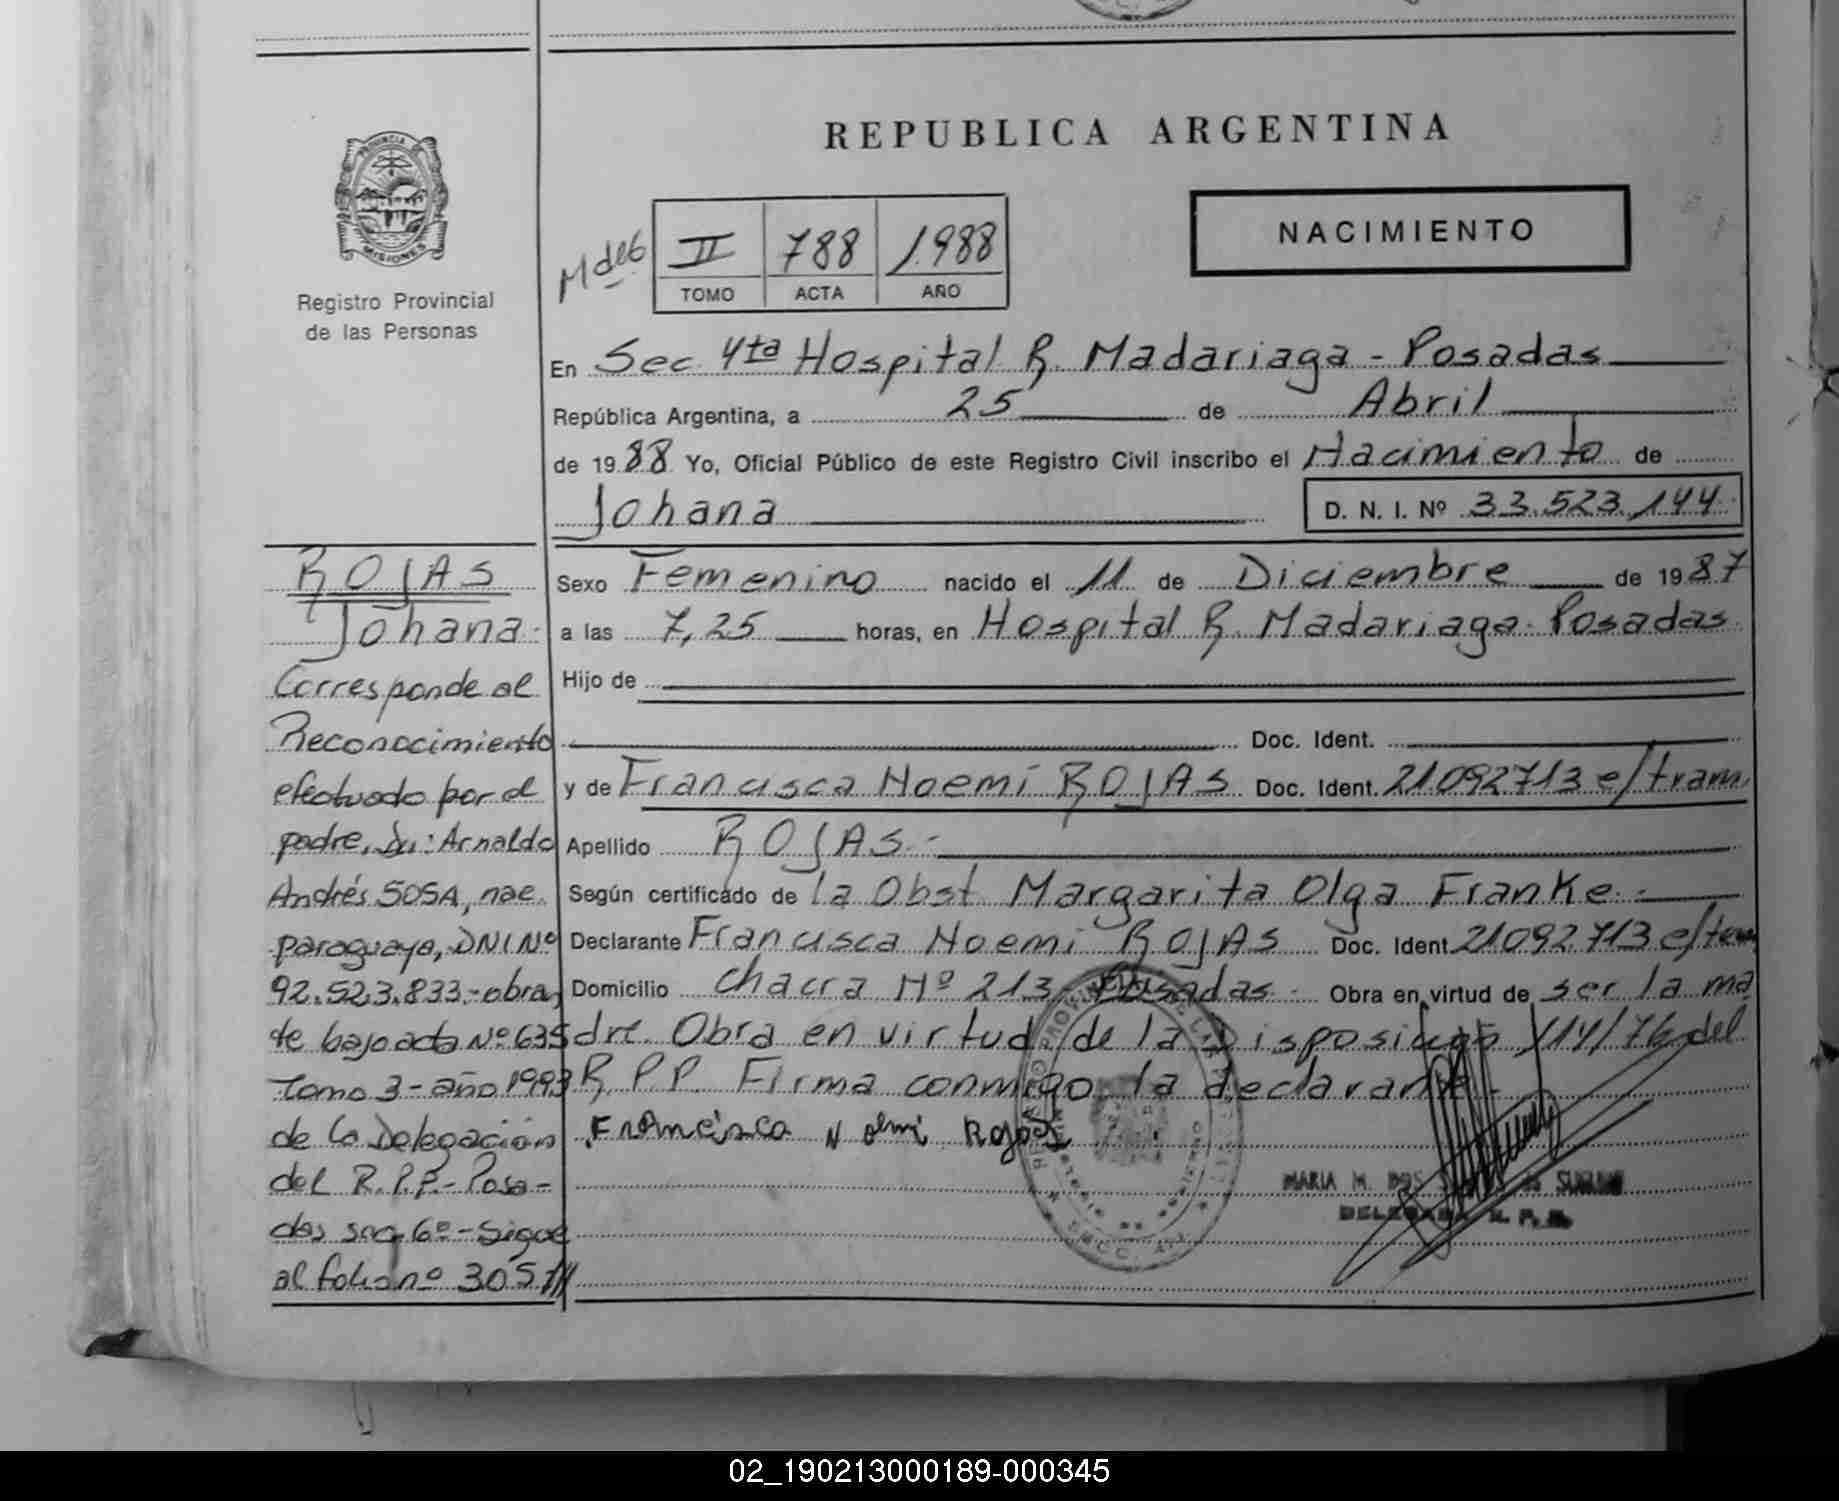 REPUBLICA ARGENTINA
PROVINCIA DE
MISIONES
Registro Provincial
de las Personas
NACIMIENTO
II 788 1.988
TOMO ACTA AÑO
En Sec. 4ta Hospital R. Madariaga - Posadas
República Argentina, a 25 de Abril
de 1988 Yo, Oficial Público de este Registro Civil inscribo el Nacimiento de
Johana D. N. I. Nº 33.523.144
Sexo Femenino nacido el 11 de Diciembre de 1987
a las 7,25 horas, en Hospital R. Madariaga. Posadas
Hijo de
Doc. Ident.
y de Francisca Noemí ROJAS Doc. Ident. 21092713 e/tram.
Apellido ROJAS.-
Según certificado de la Obst. Margarita Olga Franke.-
Declarante Francisca Noemi ROJAS Doc. Ident. 21092713
Domicilio chacra Nº 213 Posadas - Obra en virtud de ser la ma
dre. Obra en virtud de la Disposición 114/76 del
R.P.P. Firma conmigo la declarante.-
Francisca Noemi Rojas
MARIA M. DOS
DELEGADA R. P. P.
ROJAS
Johana-
Corresponde al
Reconocimiento
efectuado por el
padre, Arnaldo
Andrés SOSA, nac.
paraguaya, DNI Nº
92.523.833.-obran
te bajo acta Nº 635
tomo 3-año 1993
de la Delegación
del R.P.P.-Posa-
das 6º-Sigue
al folio nº 305///
02_190213000189-000345